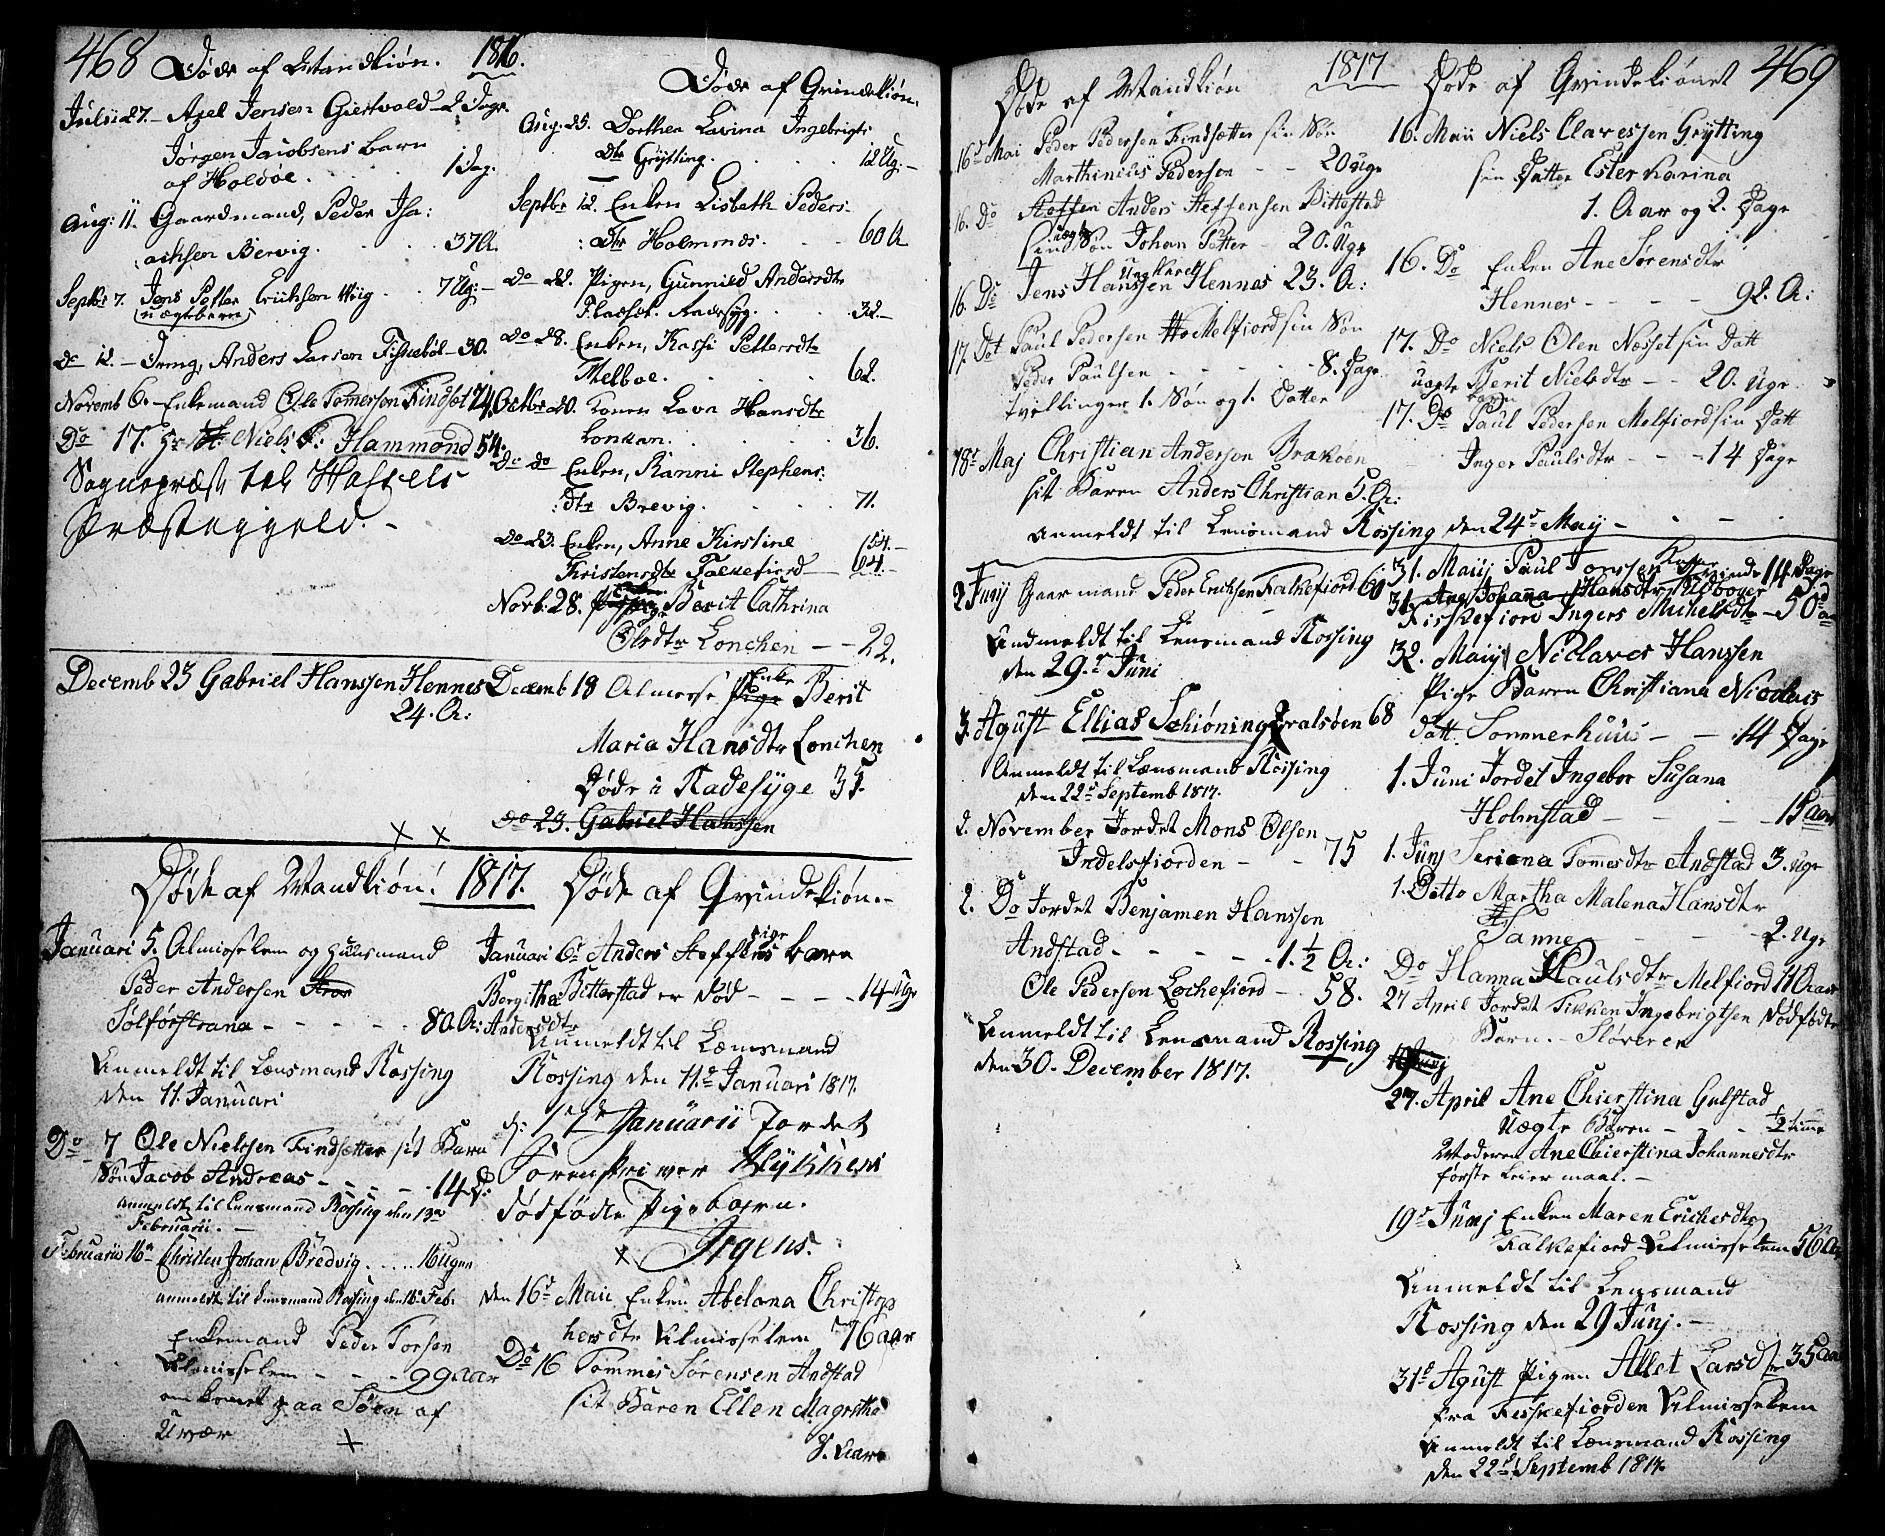 468 Døde af Mandkiøn. 1816.
Julii 27. Axel Jensen Giertvold 2 Dage.
Jørgen Jacobsens barn
af Holdøe . . . 1 Dag.
Aug: 11. Gaardmand, Peder Isa:
achsen Bervig . . . 37 A.
Septbr 7. Jens Petter Erichsen Wiig . . 7 Ug:
uægtebarn
do 12 – Dreng, Anders Larsen Fiskebøl – 30.
Novemb 6. – Enkemand Ole Tomersen Findset 74.
Do 17. Hr Niels Hammond 54.
Sognepræst til Hassels
Præstegjeld. –
Decemb 23 Gabriel Hanssen Hennes
24. A:
Døde af Qvindekiøn.
Aug: 25. Dorthea Lavina Ingebrigts
Dtr Grytting . . . 12 Ug: –
Septbr 12. Enken Lisbeth Peders:
:Dtr Holmnes . . . 60 A
do 22. Pigen, Gunnild Andersdtr
Flasset. Radesyg . . . 32 –
do 28. Enken, Kassi Pettersdtr
Melboe . . . 62.
Octbr 20. Konen Lava Hansdtr
Lonkan . . . 36.
do do Enken, Ranni Stephens:
:dtr Brevig . . . 71.
do 23. Enken, Anne Kirstine
Kristensdtr Falkefiord 64. –
Novb: 28. Enken Berit Cathrina
Olsdtr Lonchen – – 22.
Decemb 18 Almesse Enke Berit
Maria Hansdtr Lonchen
Døde i Radesyge 35.
do 23. Gabriel Hanssen
x x
Døde af Mandkiøn! 1817. Døde af Qvindekiøn. –
Januari 5. Almisselem og Huusmand
Peder Andersen
Sølførstrana – – – – 80 A:
Anmeldt til Lænsmand Rossing
den 11. Januari
Do 7 Ole Nielssen Findsætter sit Barn
Søn Jacob Andreas – – – – 14 D:
anmeldt til Lensmand Røssing den 13de
Februarii. –
Februarii 16de Christen Johan Bredvig . . . . . 16 Ugers
anmeldt til Lensmand Røssing den 16. Feb.
Enkemand Peder Torsen
Almisselem – – – 99 aar
omkomet paa Søen af
Uvær
x
Januari 6te Anders Steffens pige barn
Bergitha Bitterstad er død – – – – 14 Uger
Andersdtr
Anmeldt til Lænsmand
Rossing den 11.te Januari 1817.
d: 17de Januarii Jordet
Sorenskriver Wykkens
dødfødte Pigebarn.
Irgens.
x
den 16de Maii Enken Abelona Christop
hersdtr Almisselem 76 aar
Do 16 Tommes Sørensen Andstad
sit Baren Ellen Magretha
Døde af Mandkiøn 1817 Døde af Qvindekiønet 469
16de Mai Peder Pedersen Findsætter sin Søn
Marthinius Pedersen – – 20 Uger
16. Do Steffen Anders Steffensen Bittestad
sin uægte Søn Johan Petter – 20. Uger
16. Do Jens Hanssen Ungkarl Hennes 23. A:
17. Dot Paul Pedersen Melfiord sin Søn
Peder Paulsen – – – – 8. Dage
tvillinger 1. Søn og 1. Datter
18de Maj Christian Andersen Brakøen
sit Baren Anders Christian 5. A:
Anmeldt til Lensmand Rossing den 24de May –
2 Junj Gaarmand Peder Erichsen Falkefiord 60
Andmeldt til Lensmand Rossing
den 29.de Juni
3. Agust Ellias Schiøning Hvalsøen 68
Anmeldt til Lænsmand Rossing
den 22de Septemb 1817.
2. November Jordet Mons Olsen
Indelsfiorden – – 75
2. Do Jordet Benjamen Hanssen
Andstad – – – – – 1. ½ A:
Ole Pedersen Lochefiord – 58.
Anmeldt til Lensmand Rossing
den 30. December 1817.
16. Maii Niels Claressen Grytting
sin Datter Ester Karina
1. Aar og 2. Dage
16. Do Enken Ane Sørensdtr
Hennes – – – – 92. A:
17. Do Niels Olen Nesset sin Datt
uægte Berit Nielsdtr – – 20. Uger
17. Do Paul Pedersen Melfiord sin Datt
Inger Paulsdtr – – – 14 Dage
31. Maij Paul Jonssen Qvinde 14 Dage
31. Ane Johana Hansdtr
Fiskefiord Ingers Mickelsdtr – 50
32. Maij Niclaves Hanssen
Pige Baren Christiana Nicolais
datt. Sommerhuus – – 14 Dage
1. Juni Jordet Ingebor Susana
Holmstad – – – – 15 aar
1. Junj Seriana Tomesdtr Andstad 3. Uger
1. Ditto Martha Malena Hansdtr
Sanne – – – – 2. Uger
Do Hanna Paulsdtr Melfiord 11 Aar
27 April Jordet Tikken Ingebrigtsen dødfødte
Barn – Sløveren
19 Junj
27. April Ane Chierstina Gulstad
Uægte Baren – – – ½ time
Moderen Ane Chierstina Johannesdtr
første Leiermaal. –
19de Junj Enken Maren Erichsdtr
Falkefiord Almisselem 56 A
Anmeldt til Lensmand
Rossing den 29 Junj. –
31de Agust Pigen Allet Larsdtr 35 aa
fra Fiskefiorden Almisselem
Anmeldt til Lænsmand Rossing
den 22de Septemb 1817.